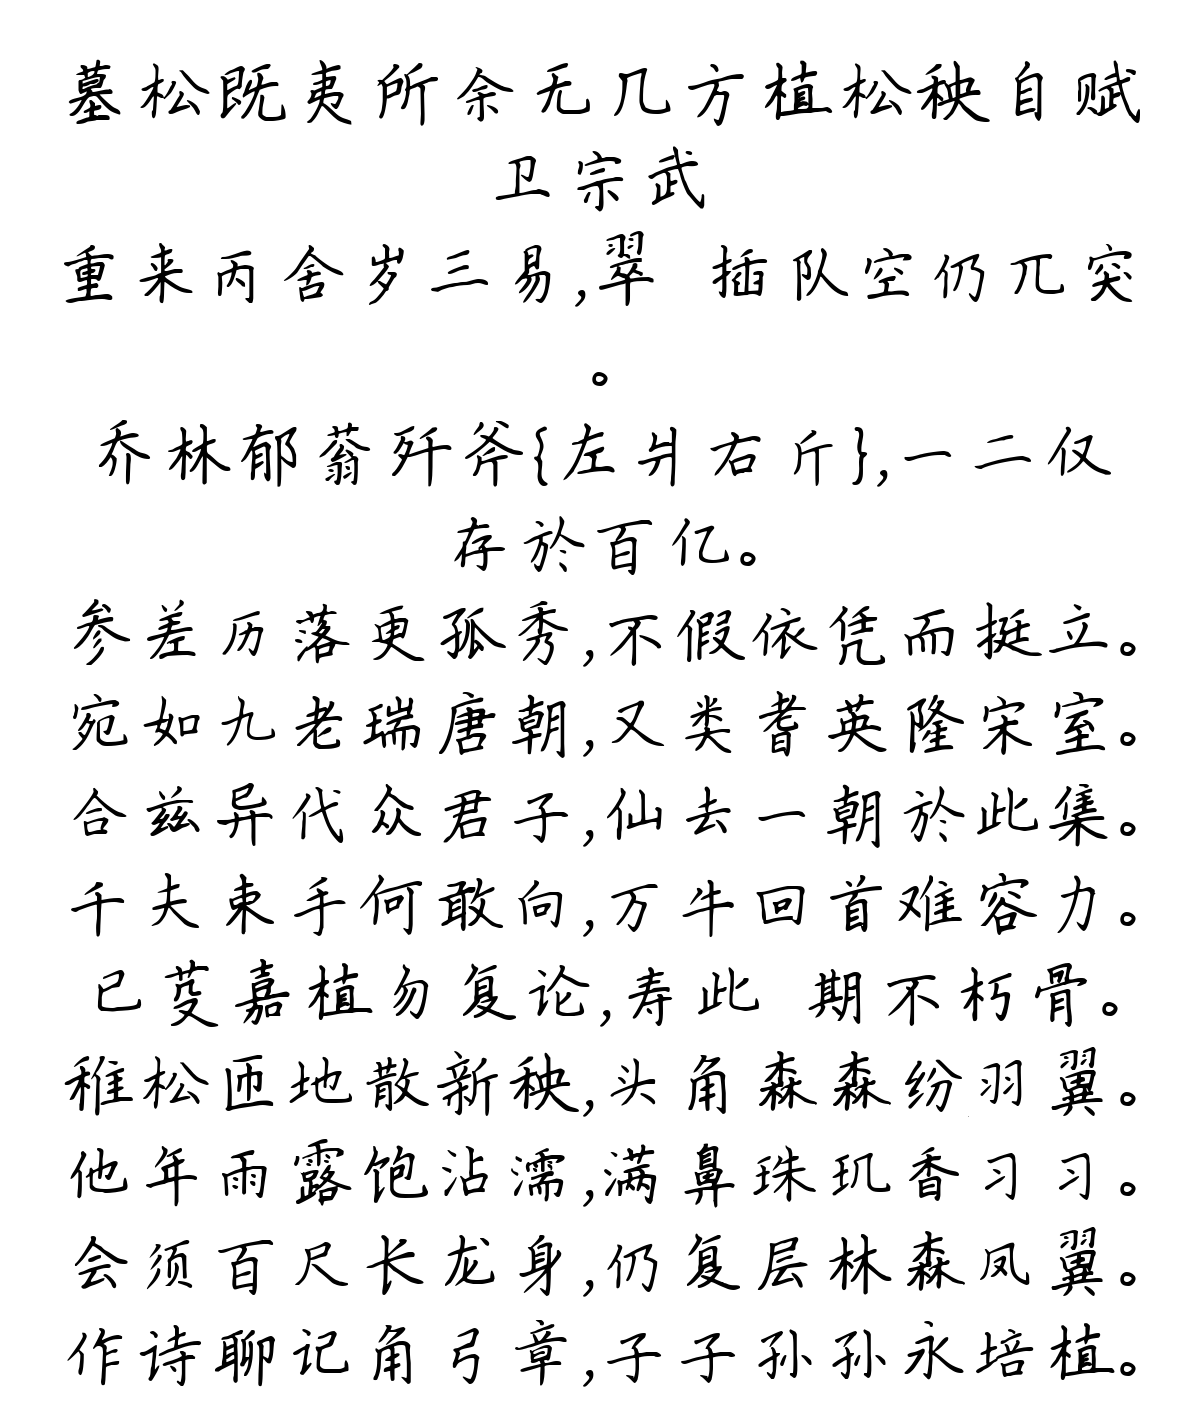 墓松既夷所余无几方植松秧自赋
卫宗武
重来丙舍岁三易,翠 插队空仍兀突
。
乔林郁蓊歼斧{左爿右斤},一二仅
存於百亿。
参差历落更孤秀,不假依凭而挺立。
宛如九老瑞唐朝,又类耆英隆宋室。
合兹异代众君子,仙去一朝於此集。
千夫束手何敢向,万牛回首难容力。
已荾嘉植勿复论,寿此 期不朽骨。
稚松匝地散新秧,头角森森纷羽翼。
他年雨露饱沾濡,满鼻珠玑香习习。
会须百尺长龙身,仍复层林森凤翼。
作诗聊记角弓章,子子孙孙永培植。